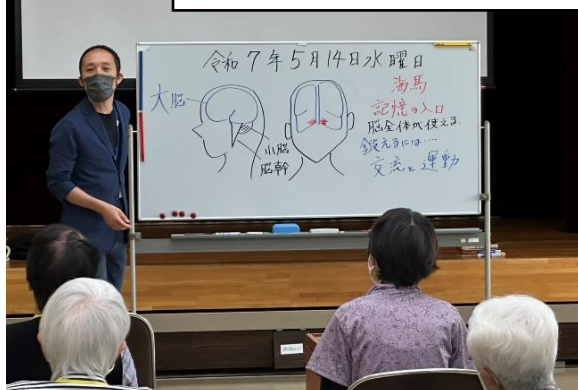 令和7年5月14日水曜日
大脳
小脳
脳幹
海馬
記憶の入口
脳全体が使える
鍛えるには…
交流と運動